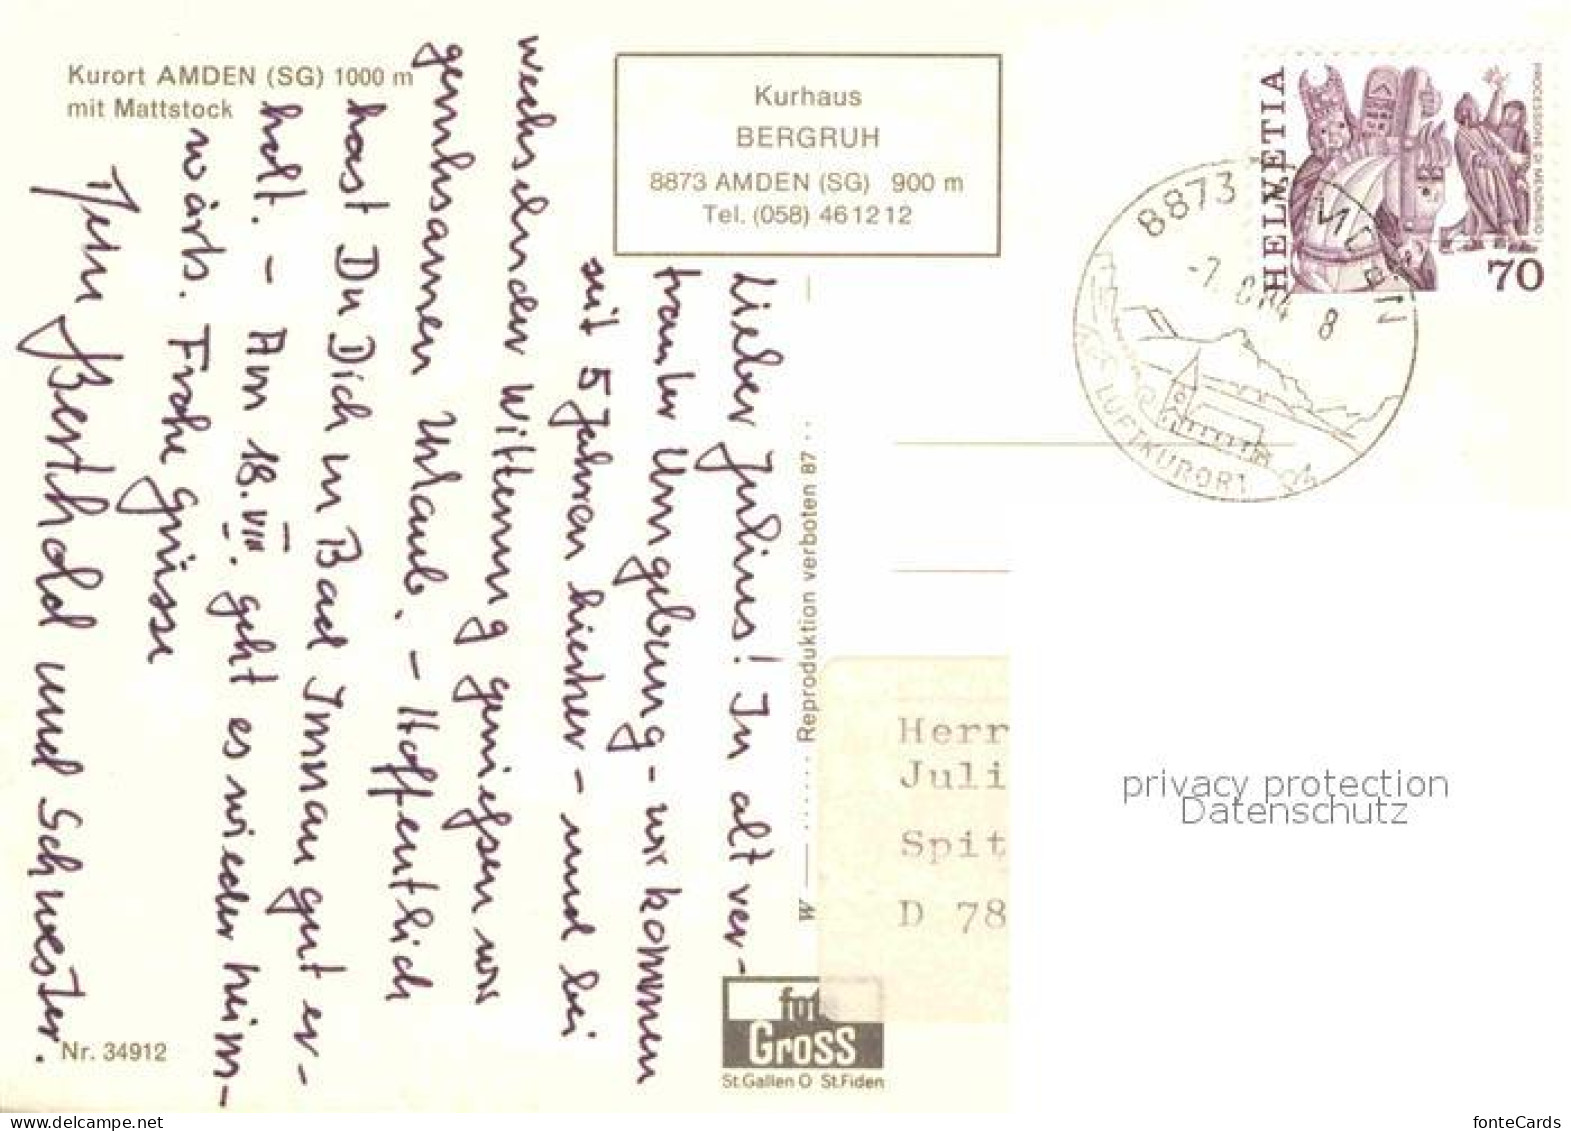 Kurort AMDEN (SG) 1000 m
mit Mattstock
Kurhaus
BERGRUH
8873 AMDEN (SG) 900 m
Tel. (058) 46 12 12
Lieber Julius! In alt ver-
trauter Umgebung - wir kommen
seit 5 Jahren hierher - und bei
wechselnder Witterung geniessen wir
geruhsamen Urlaub. - Hoffentlich
hast Du Dich in Bad Imnau gut er-
holt. - Am 18. VIII. geht es wieder heim-
wärts. Frohe Grüsse
Berthold und Schwester.
Nr. 34912
W
Reproduktion verboten 87
foto
Gross
St.Gallen O St.Fiden
HELVETIA
PROCESSIONE DI MENDRISIO
70
8873 AMDEN
8
LUFTKURORT
Herr
Juli
Spit
D 78
privacy protection
Datenschutz
fonteCards